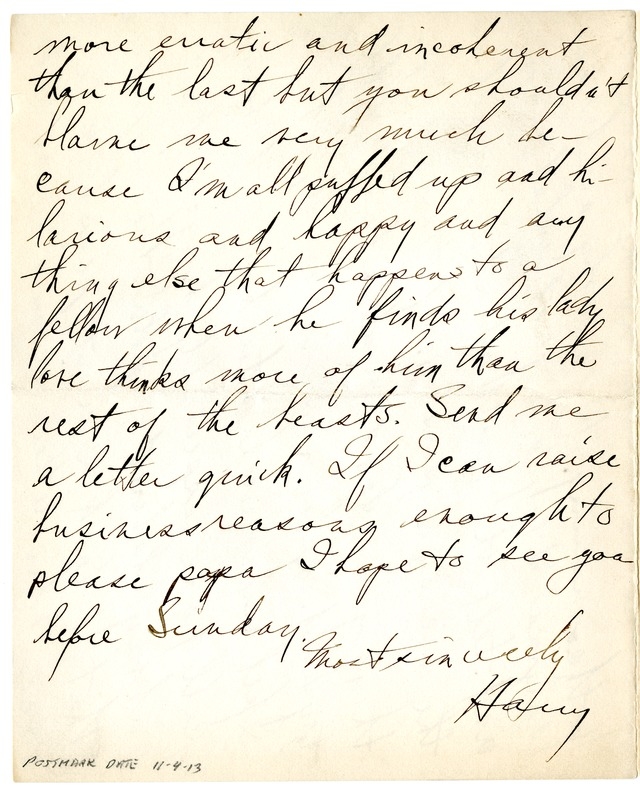 more erratic and incoherent
than the last but you shouldn't
blame me very much be-
cause I'm all puffed up and hi-
larious and happy and any
thing else that happens to a
fellow when he finds his lady
love thinks more of him than the
rest of the beasts. Send me
a letter quick. If I can raise
business reasons enough to
please papa I hope to see you
before Sunday.
Most sincerely
Harry
POSTMARK DATE 11-4-13